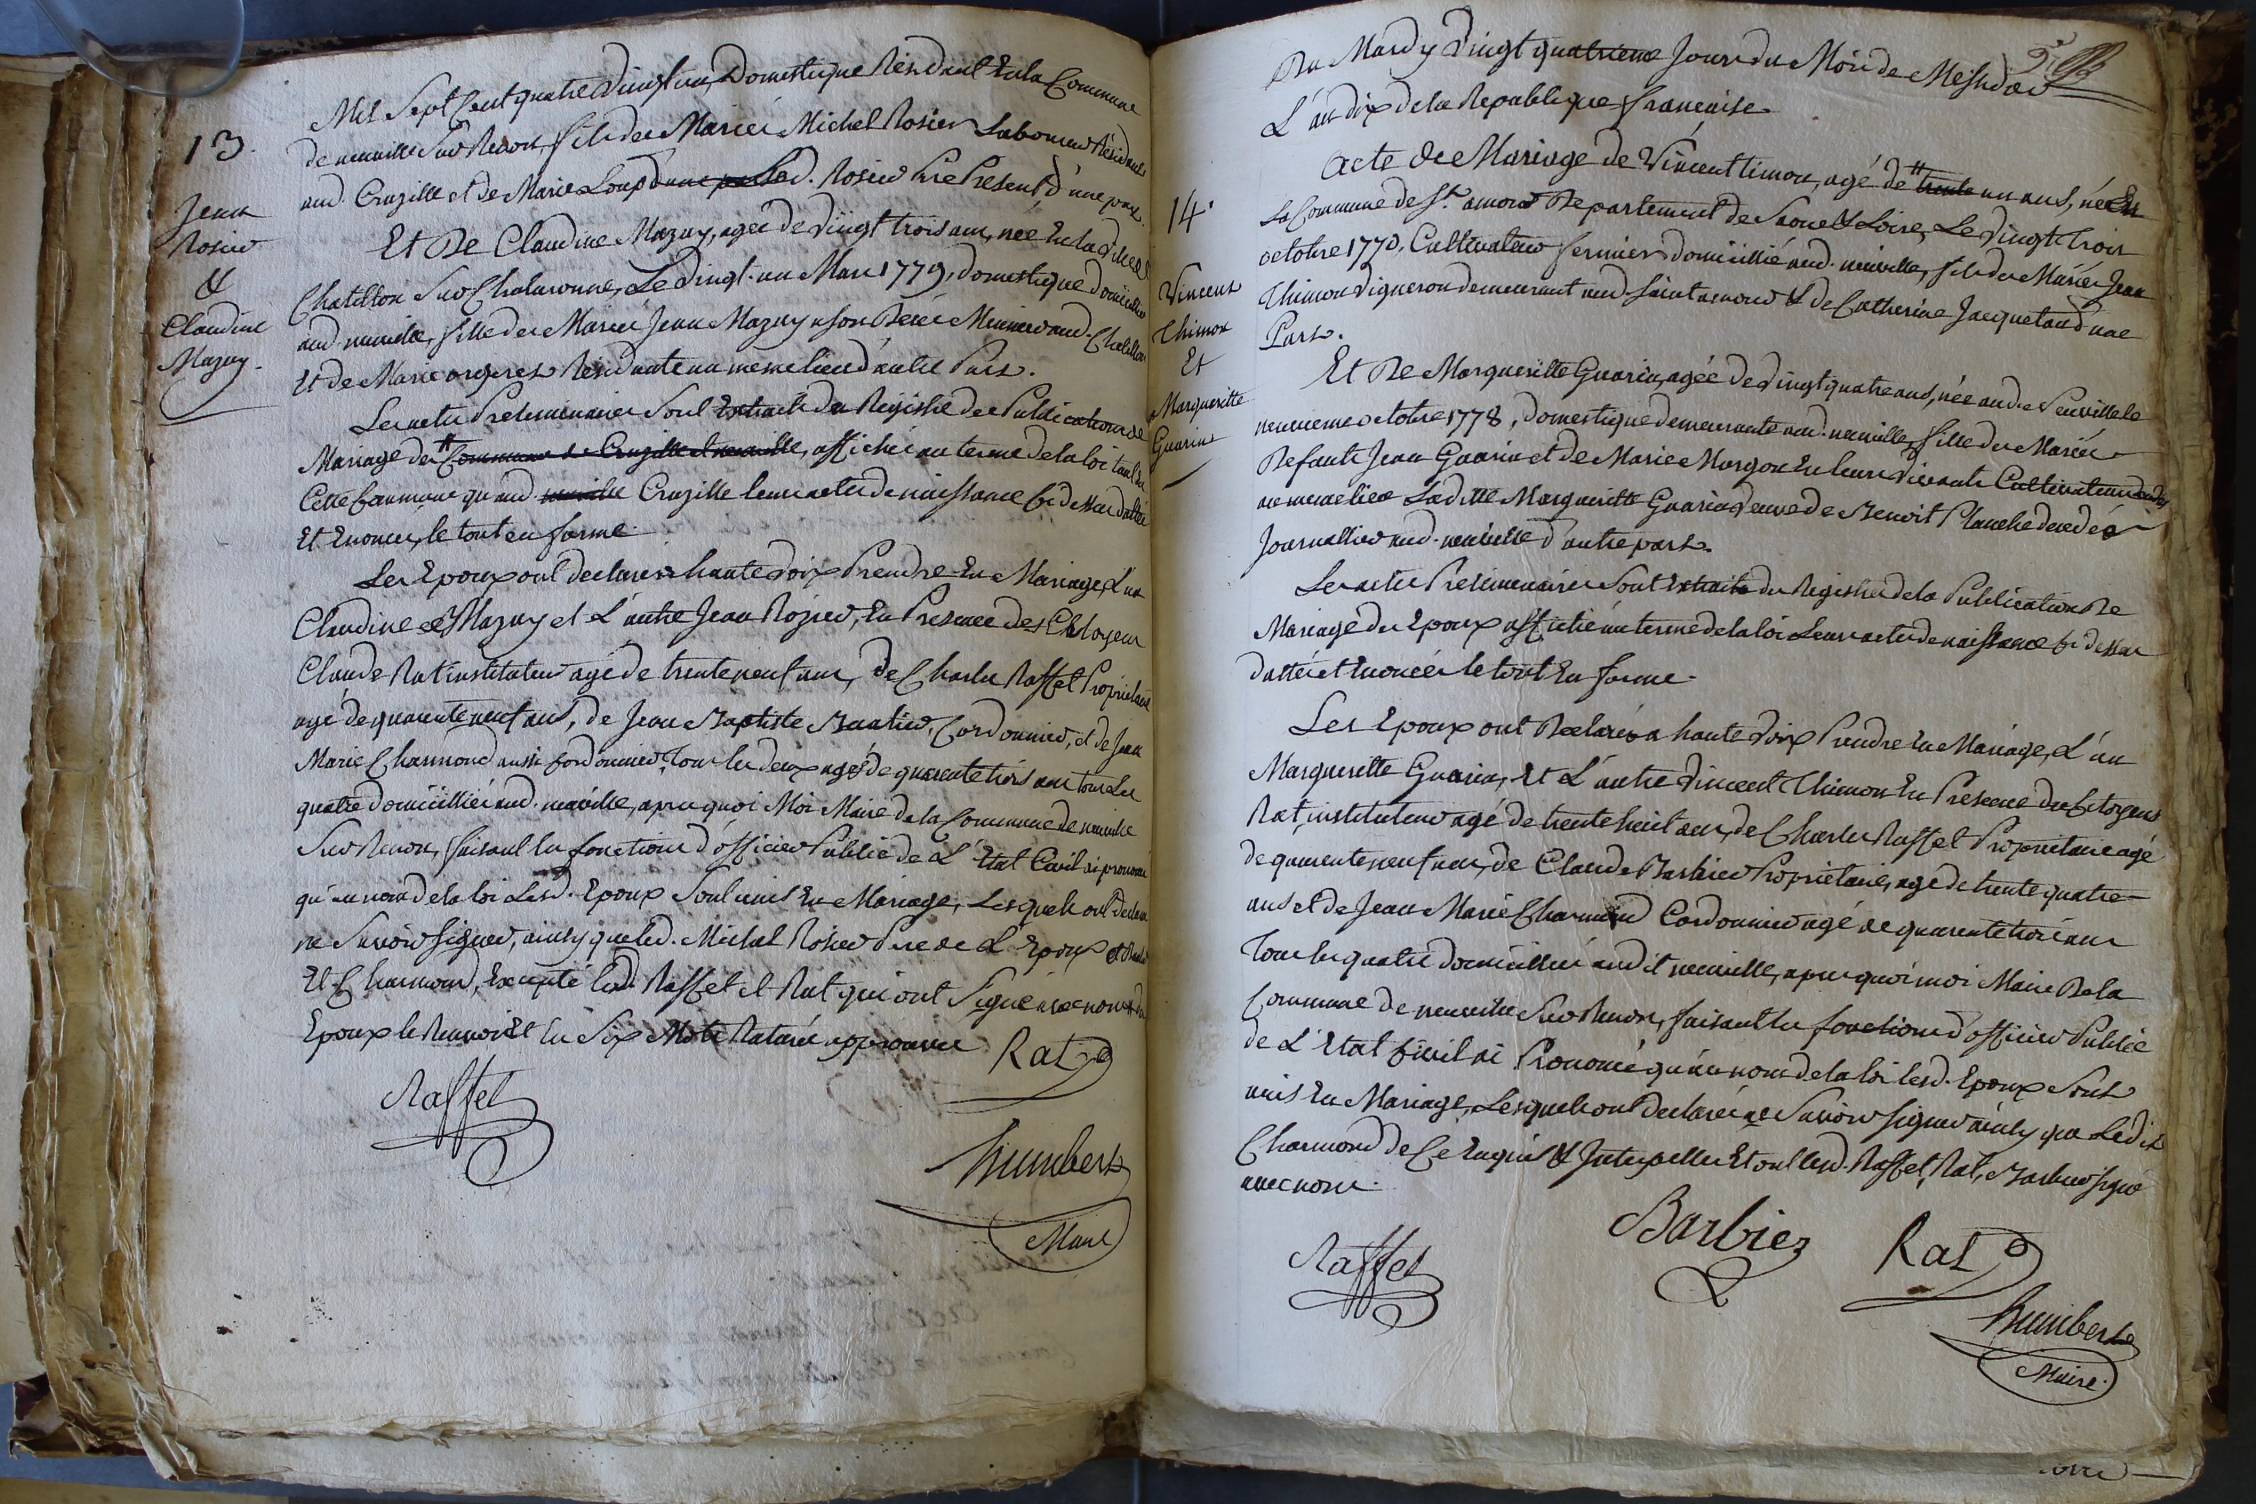 13.
Jean
Rosier
&
Claudine
Mazuy.
Mil Sept Cent quatre Vingt un, Domestique Résidant En la Commune
de neuville Sur Renon, fils des Mariés Michel Rosier Laboureur Résidant
aud. Cruzille et de Marie Loup d'une par Led. Rosier Père Présent d'une part.
Et De Claudine Mazuy, agée de Vingt trois ans, née En la Ville de
Chatillon Sur Chalaronne, Le Vingt-un Mars 1779, domestique domiciliée
aud. neuville, fille des Mariés Jean Mazuy a son Décés Meunier aud. Chatillon
Et de Marie Résidante au meme lieu d'autre Part.
Les actes Preliminaires Sont Extraits du Régistre des Publications de
Mariage des Commune de Cruzille et neuville, affiché au terme de la loi tant
Cette Commune qu'aud. neuville Cruzille leurs actes de naissance Ci dessus dattés
Et Enoncés, le tout en forme.
Les Epoux ont declarés a haute Voix Prendre En Mariage, L'un
Claudine Mazuy et L'autre Jean Rozier, En Presence des Citoyens
Claude Rat instituteur agé de trente neuf ans, de Charles Raffet Propriétaire
agé de quarente neuf ans, de Jean Baptiste Cordonnier, et de Jean
Marie Charmond aussi Cordonnier, Tous les deux agés de quarente trois ans tous Les
quatre domiciliés aud. neuville, apres quoi Moi Maire de la Commune de neuville
Sur Renon, faisant les fonctions d'officier Public de L'Etat Civil ai prononcé
qu'au nom de la loi Lesd. Epoux Sont unis En Mariage, Lesquels ont declaré
ne Savoir Signer, ainsy que led. Michel Rosier Pere de L'Epoux et
Et Charmond, Excepté lesd. Raffet et Rat qui ont Signé avec nous
Epoux le Renvoi Et les Six Mots Raturés approuvés
Raffet
Rat
humbert
Maire
Du Mardy Vingt quatrieme Jour du Mois de Messidor
L'an dix de la Republique française
14.
Vincent
Thimon
Et
Marguerite
Guarin
Acte de Mariage de Vincent timon, agé de trente un ans, né En
La Commune de St. amour Departement de Saone & Loire, Le Vingt Trois
octobre 1770, Cultivateur fermier domicillié aud. neuville, fils des Mariés Jean
Thimon Vigneron demeurant aud. Saint amour & de Catherine Jacquetand d'une
Part.
Et De Marguerite Guarin, agée de Vingt quatre ans, née aud. Neuville le
neuvieme octobre 1778, domestique demeurante aud. neuville, fille des Mariés
Defunts Jean Guarin et de Marie Morgon En leurs Vivants Cultivateurs
au meme lieu Laditte Marguerite Guarin Veuve de Benoit Planche decedé
Journallier aud. neuville d'autre part.
Les actes Preliminaires Sont Extraits du Registre de la Publication De
Mariage des Epoux affiché au terme de la loi Leurs actes de naissance Ci dessus
dattés et Enoncés le tout En forme.
Les Epoux ont Declarés a haute Voix Prendre En Mariage, L'un
Marguerite Guarin, Et L'autre Vincent Thimon En Presence des Citoyens
Rat, instituteur agé de trente huit ans, de Charles Raffet Propriétaire agé
de quarente neuf ans, de Claude Barbier Propriétaire, agé de trente quatre
ans et de Jean Marie Charmond Cordonnier agé de quarente trois ans
Tous les quatre domicilliés audit neuville, apres quoi moi Maire De la
Commune de neuville Sur Renon, faisant les fonctions d'officier Public
de L'Etat Civil ai Prononcé qu'au nom de la loi lesd. Epoux Sont
unis En Mariage, Lesquels ont declaré ne Savoir Signer ainsy que Ledit
Charmond de Ce Enquis & Interpellés Et ont lesd. Raffet, Rat, Barbier Signé
avec nous.
Raffet
Barbier
Rat
humbert
Maire.